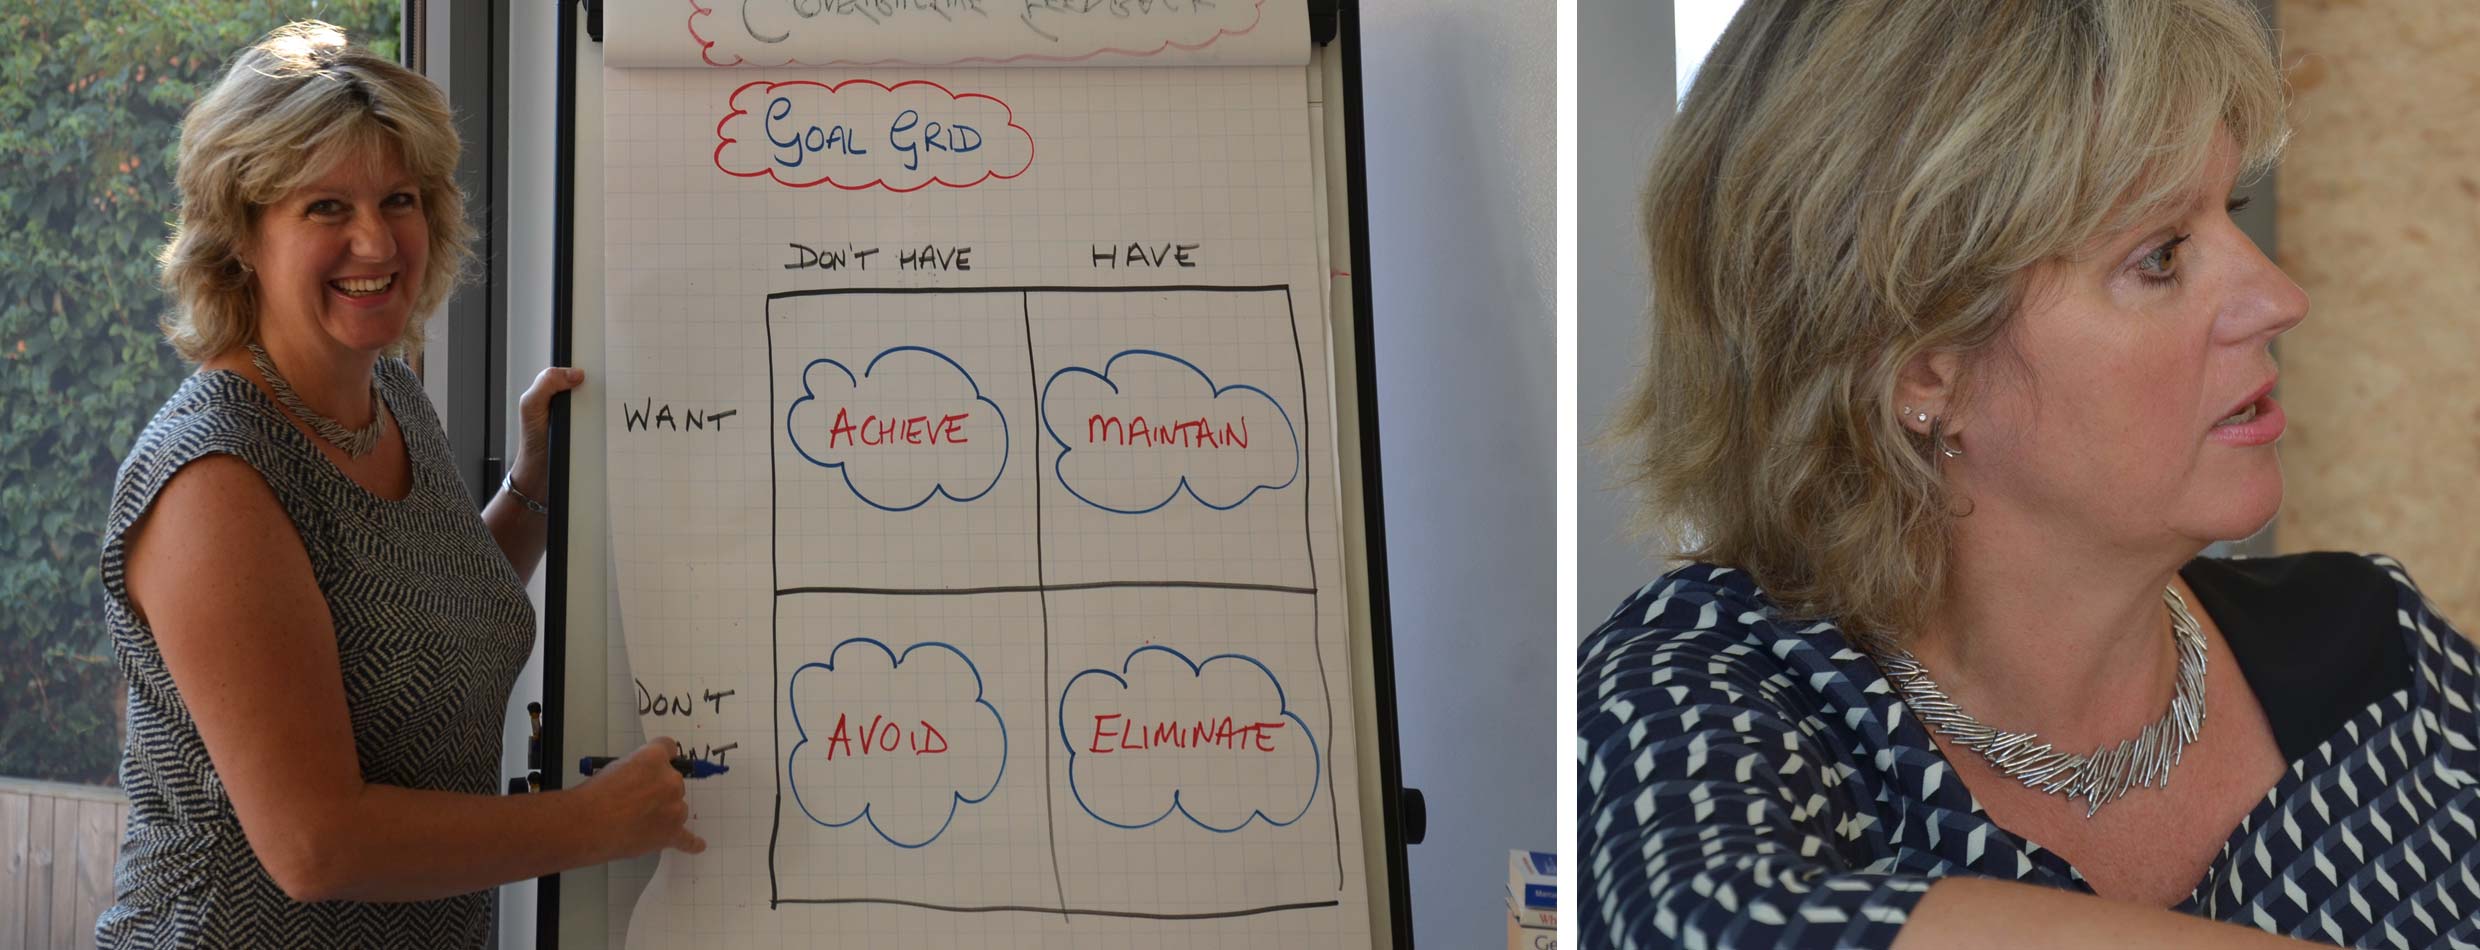 FEEDBACK
GOAL GRID
DON'T HAVE HAVE
WANT ACHIEVE MAINTAIN
DON'T
AVOID ELIMINATE